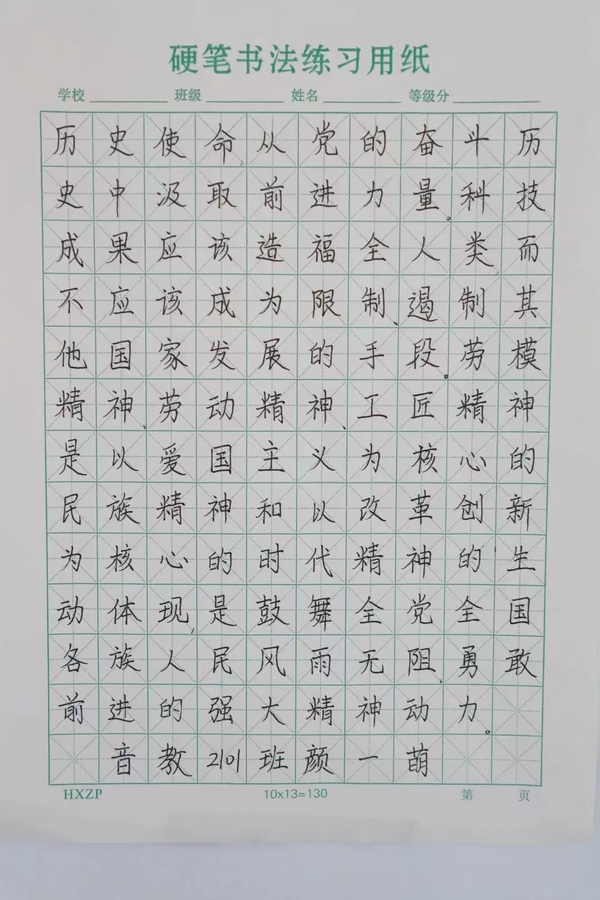 硬笔书法练习用纸
学校 班级 姓名 等级分
历史使命,从党的奋斗历
史中汲取前进力量。科技
成果应该造福全人类而
不应该成为限制、遏制其
他国家发展的手段。劳模
精神、劳动精神、工匠精神
是以爱国主义为核心的
民族精神和以改革创新
为核心的时代精神的生
动体现,是鼓舞全党全国
各族人民风雨无阻、勇敢
前进的强大精神动力。
音教2101班颜一萌
HXZP 10x13=130 第 页